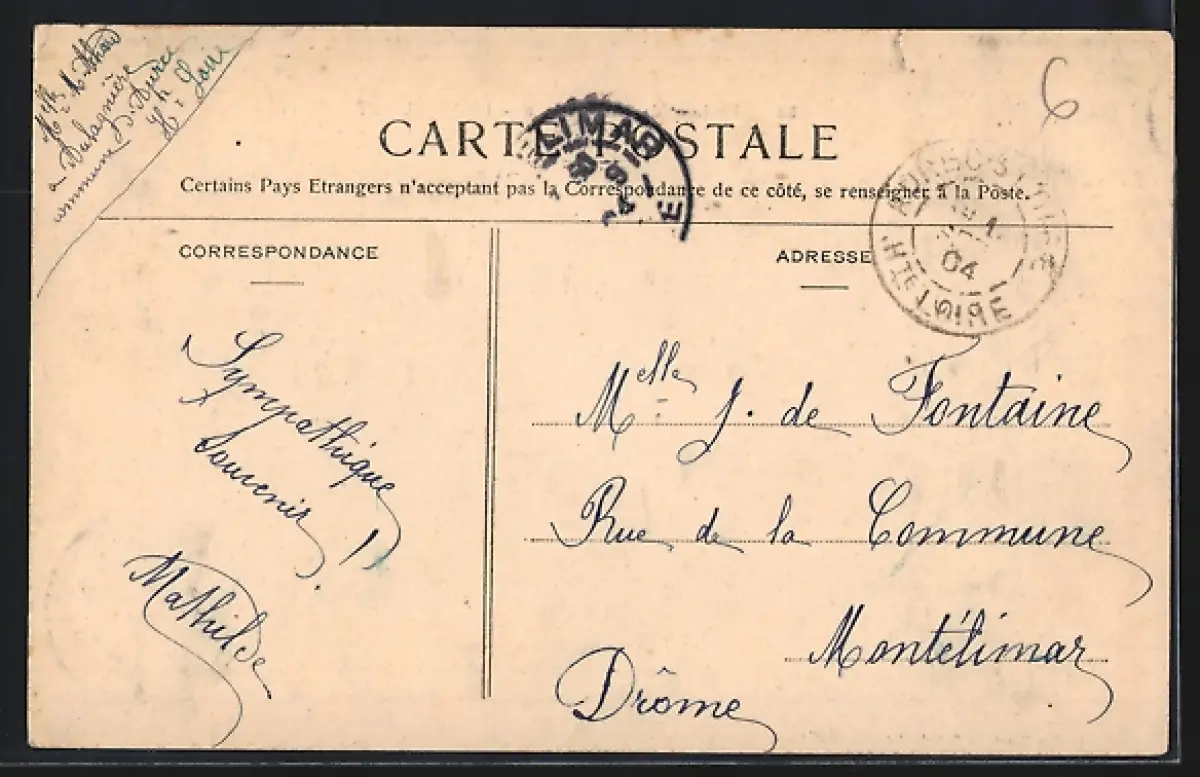 Commune d'Aurec
Hte Loire
6
CARTE POSTALE
Certains Pays Etrangers n'acceptant pas la Correspondance de ce côté, se renseigner à la Poste.
CORRESPONDANCE
ADRESSE
04
Hte LOIRE
Sympathique
souvenir !
Mathilde
Melle J. de Fontaine
Rue de la Commune
Montélimar
Drôme